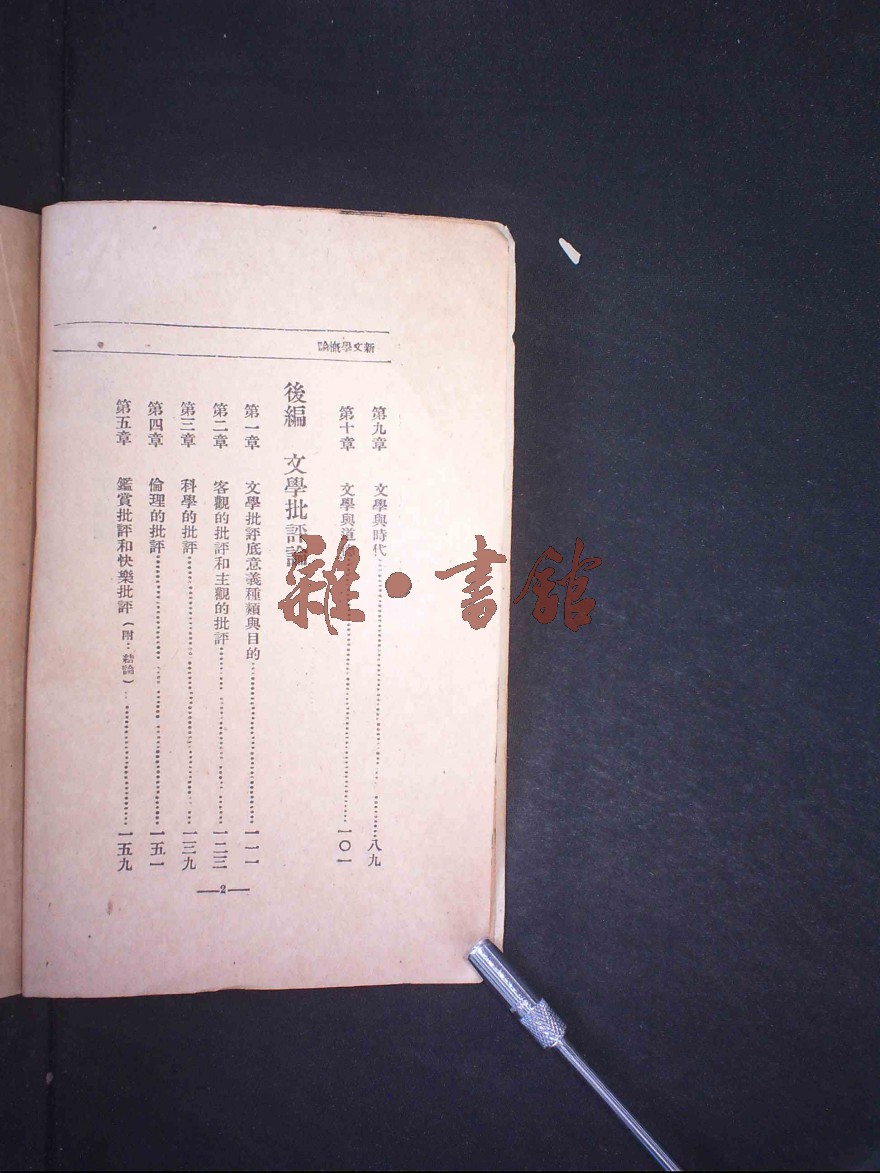 新文學概論
第九章 文學與時代……八九
第十章 文學與道……一〇一
後編 文學批評論
第一章 文學批評底意義種類與目的……一一一
第二章 客觀的批評和主觀的批評……一二三
第三章 科學的批評……一三九
第四章 倫理的批評……一五一
第五章 鑑賞批評和快樂批評(附：結論)……一五九
—2—
雜·書館